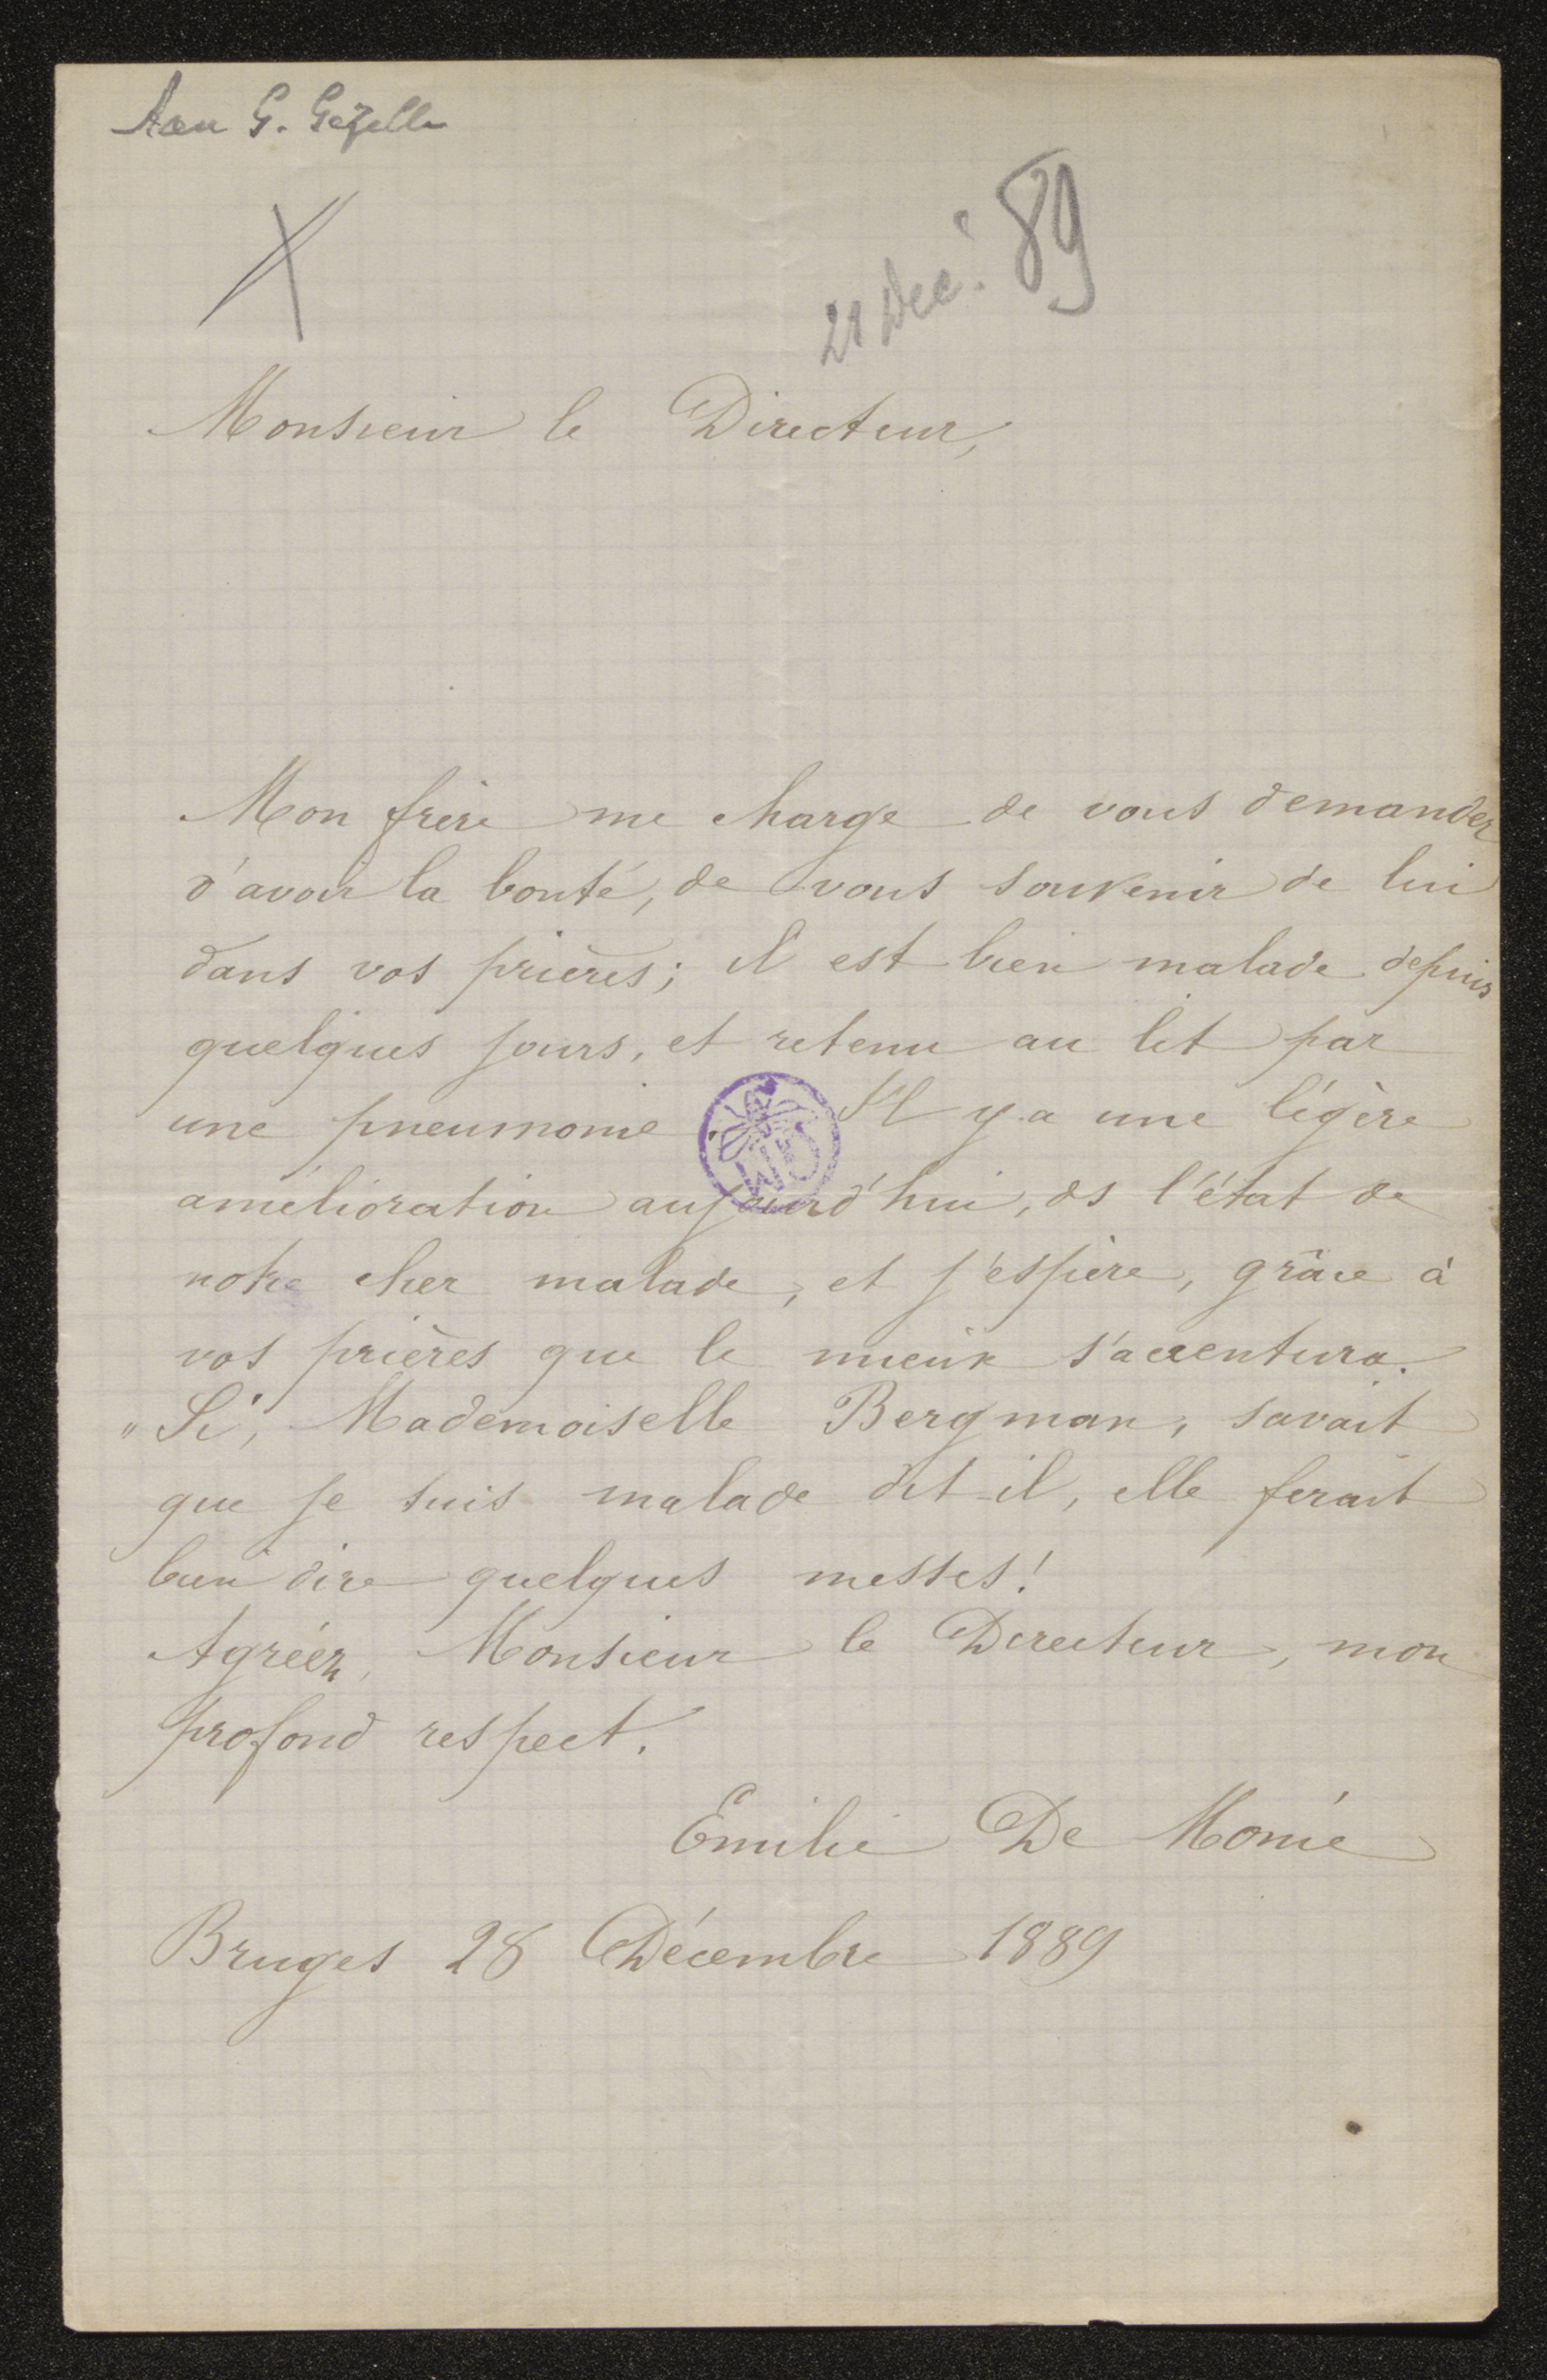 Aan G. Gezelle
X
28 Dec. 89
Monsieur le Directeur,
Mon frère me charge de vous demander
d'avoir la bonté, de vous souvenir de lui
dans vos prières; il est bien malade depuis
quelques jours, et retenu au lit par
une pneumonie. Il y a une légère
amélioration aujourd'hui, ds l'état de
notre cher malade, et j'espère, grâce à
vos prières que le mieux s'accentura.
"Si, Mademoiselle Bergman, savait
que je suis malade dit-il, elle ferait
bien dire quelques messes!
Agréez, Monsieur le Directeur, mon
profond respect.
Emilie De Monie
Bruges 28 Décembre 1889